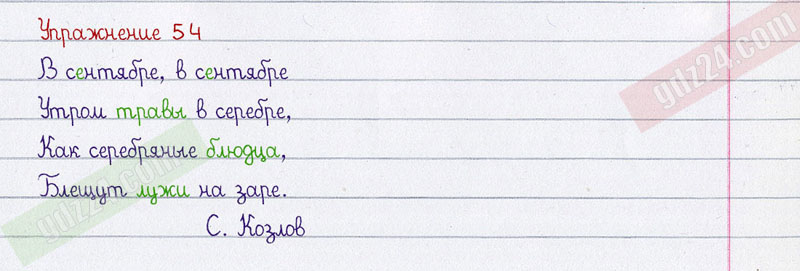 Упражнение 54
В сентябре, в сентябре
Утром травы в серебре,
Как серебряные блюдца,
Блещут лужи на заре.
С. Козлов
gdz24.com
gdz24.com